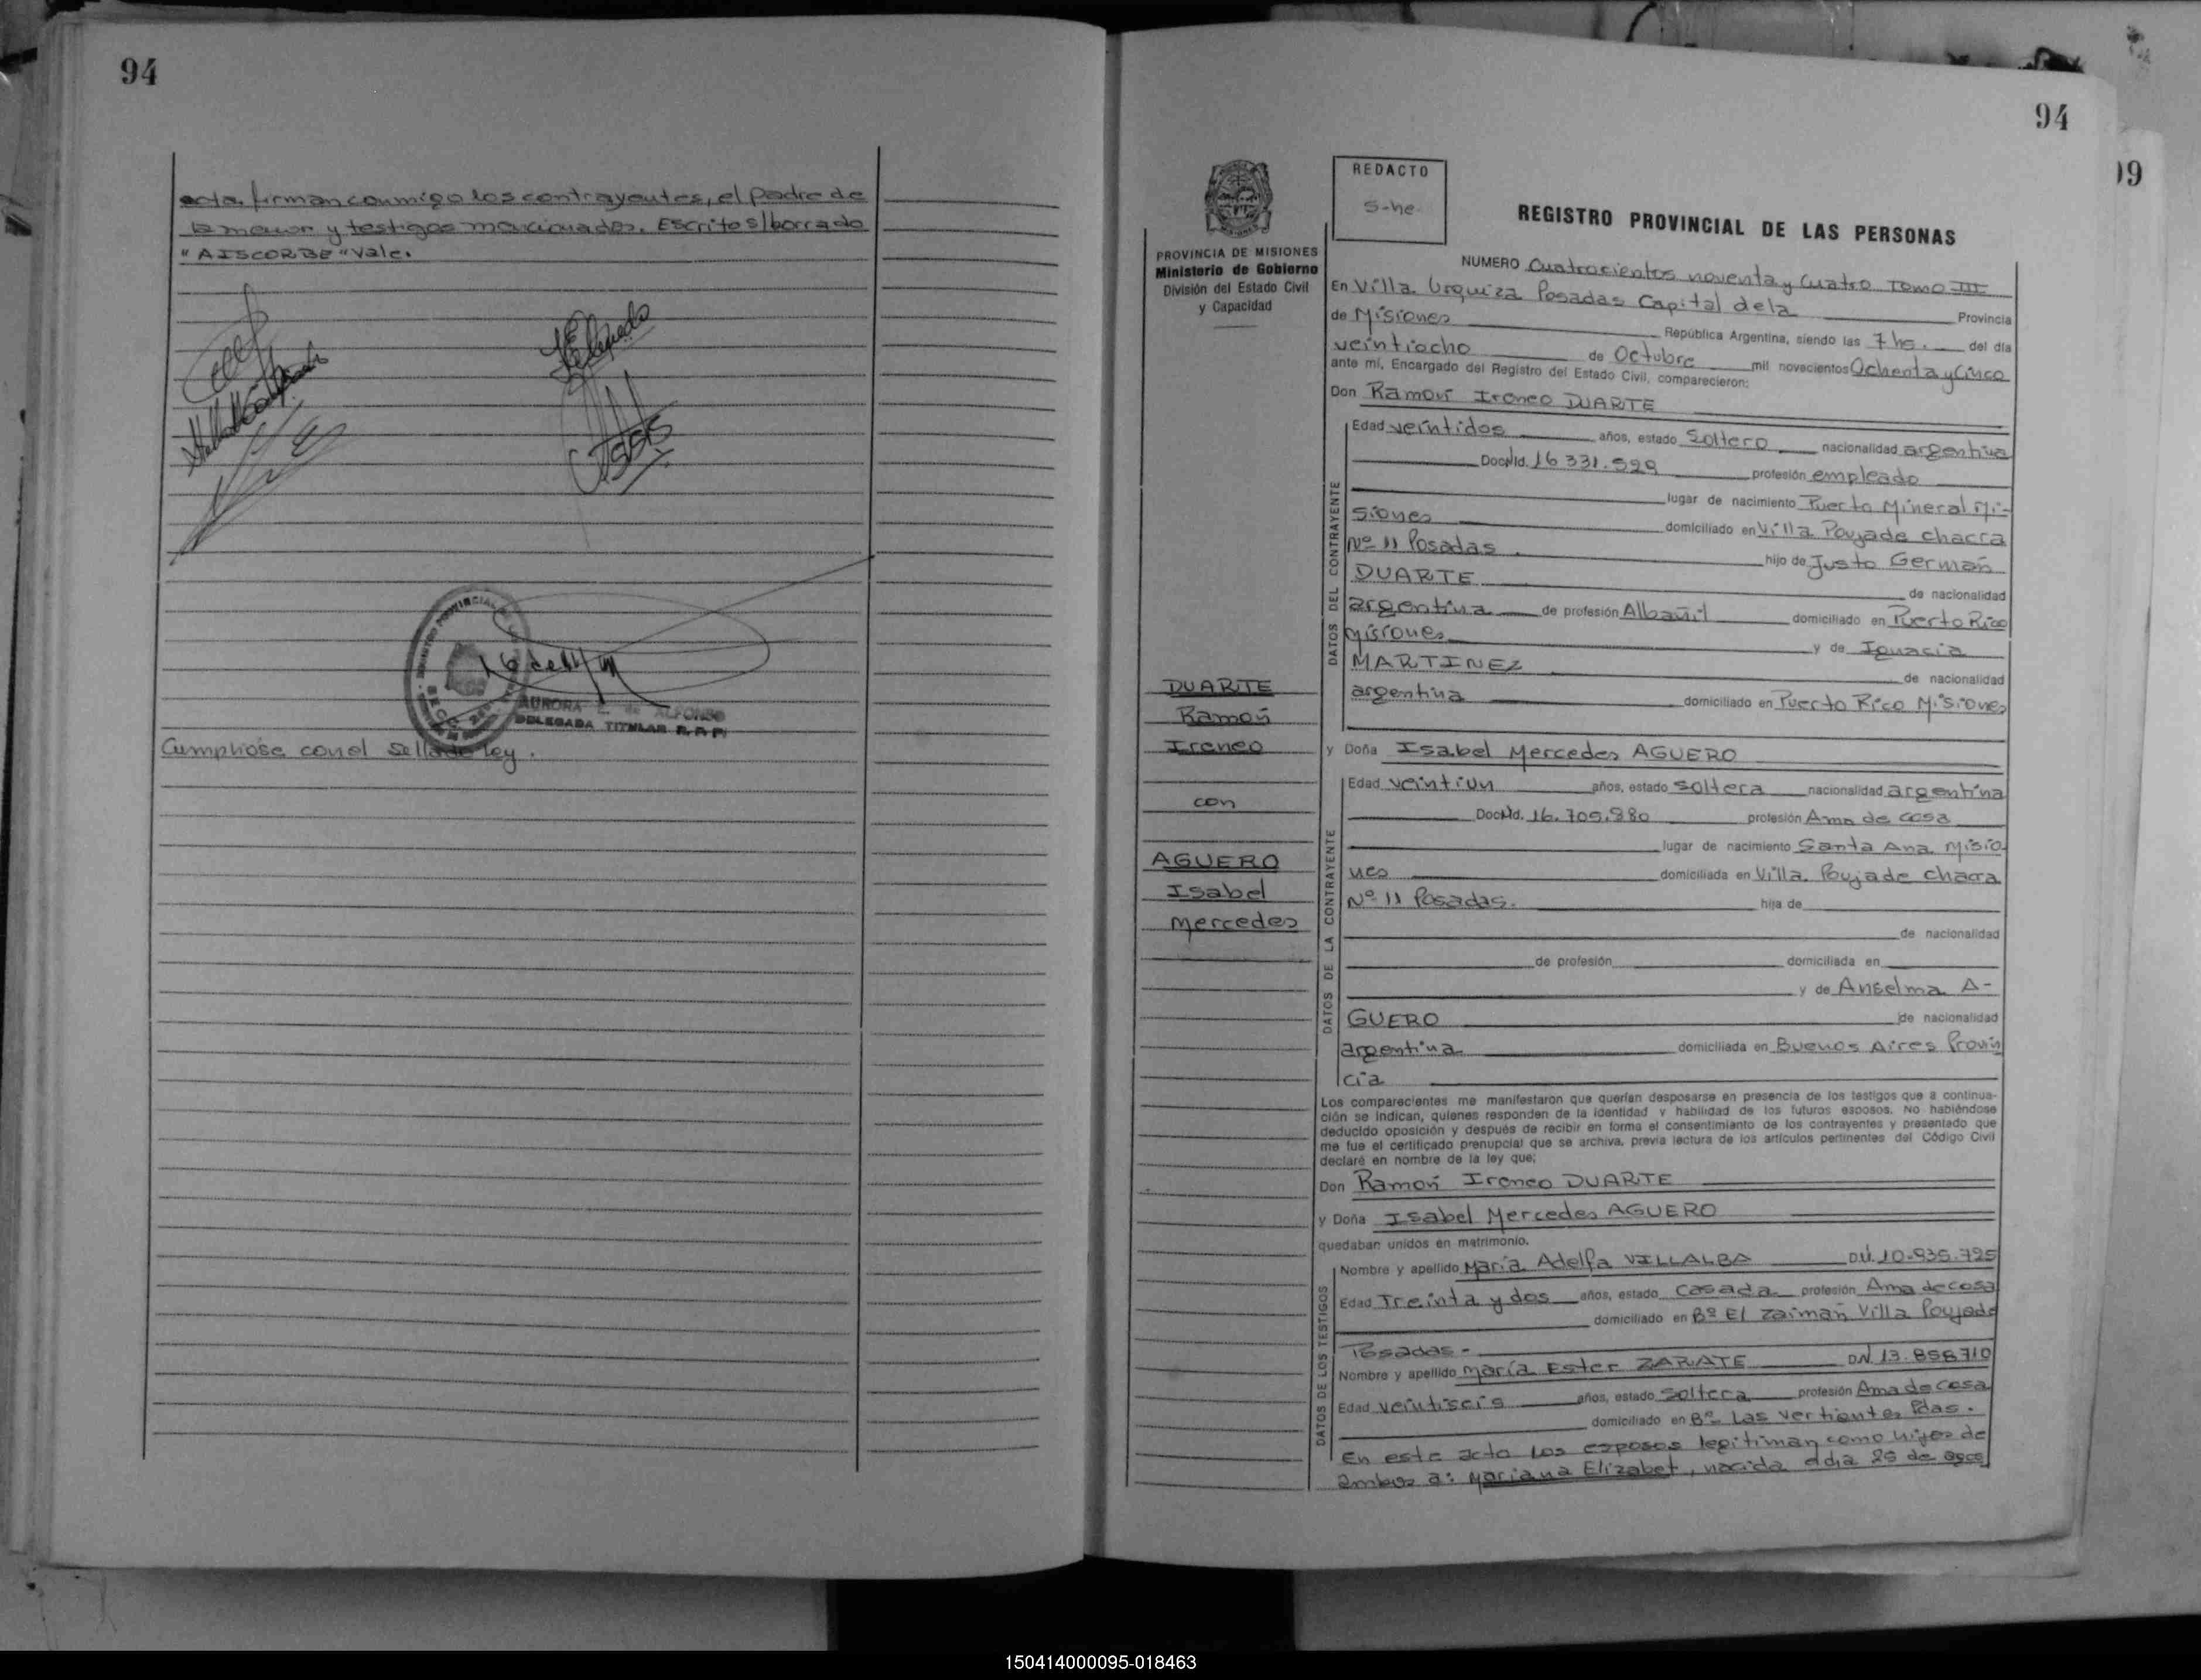 94
acta firman conmigo los contrayentes, el padre de
la menor y testigos mencionados. Escrito s/borrado
"AISCORBE" vale.
AURORA E. de ALFONSO
DELEGADA TITULAR R.P.P.
Cumpliose con el Sellado Ley.
94
99
REDACTO
S-he
PROVINCIA DE MISIONES
Ministerio de Gobierno
División del Estado Civil
y Capacidad
DUARTE
Ramón
Ireneo
con
AGUERO
Isabel
Mercedes
REGISTRO PROVINCIAL DE LAS PERSONAS
NUMERO Cuatrocientos noventa y Cuatro Tomo III
En Villa Urquiza Posadas Capital de la Provincia
de Misiones República Argentina, siendo las 7 hs. del día
veintiocho de Octubre mil novecientos Ochenta y Cinco
ante mí, Encargado del Registro del Estado Civil, comparecieron:
Don Ramón Ireneo DUARTE
DATOS DEL CONTRAYENTE
Edad veintidos años, estado Soltero nacionalidad argentina
Doc Nd. 16 331.529 profesión empleado
lugar de nacimiento Puerto Mineral Mi-
siones domiciliado en Villa Poujade chacra
Nº 11 Posadas. hijo de Justo Germán
DUARTE de nacionalidad
argentina de profesión Albañil domiciliado en Puerto Rico
Misiones y de Ignacia
MARTINEZ de nacionalidad
argentina domiciliado en Puerto Rico Misiones
y Doña Isabel Mercedes AGUERO
DATOS DE LA CONTRAYENTE
Edad veintiun años, estado Soltera nacionalidad argentina
Doc Nd. 16.705.980 profesión Ama de casa
lugar de nacimiento Santa Ana Misio-
nes domiciliada en Villa Poujade chacra
Nº 11 Posadas. hija de
de nacionalidad
de profesión domiciliada en
y de Anselma A-
GUERO de nacionalidad
argentina domiciliada en Buenos Aires Provin
cia
Los comparecientes me manifestaron que querían desposarse en presencia de los testigos que a continua-
ción se indican, quienes responden de la identidad y habilidad de los futuros esposos. No habiéndose
deducido oposición y después de recibir en forma el consentimiento de los contrayentes y presentado que
me fue el certificado prenupcial que se archiva, previa lectura de los artículos pertinentes del Código Civil
declaré en nombre de la ley que;
Don Ramón Ireneo DUARTE
y Doña Isabel Mercedes AGUERO
quedaban unidos en matrimonio.
DATOS DE LOS TESTIGOS
Nombre y apellido María Adelfa VILLALBA DU. 10.935.725
Edad Treinta y dos años, estado casada profesión Ama de casa
domiciliado en Bº El Zaimán Villa Poujade
Posadas-
Nombre y apellido María Ester ZARATE DN. 13.858710
Edad veintiseis años, estado Soltera profesión Ama de casa
domiciliado en Bº Las Vertientes Pdas.
En este acto los esposos legitiman como hijos de
ambos a: Mariana Elizabet, nacida el dia 25 de agos
150414000095-018463